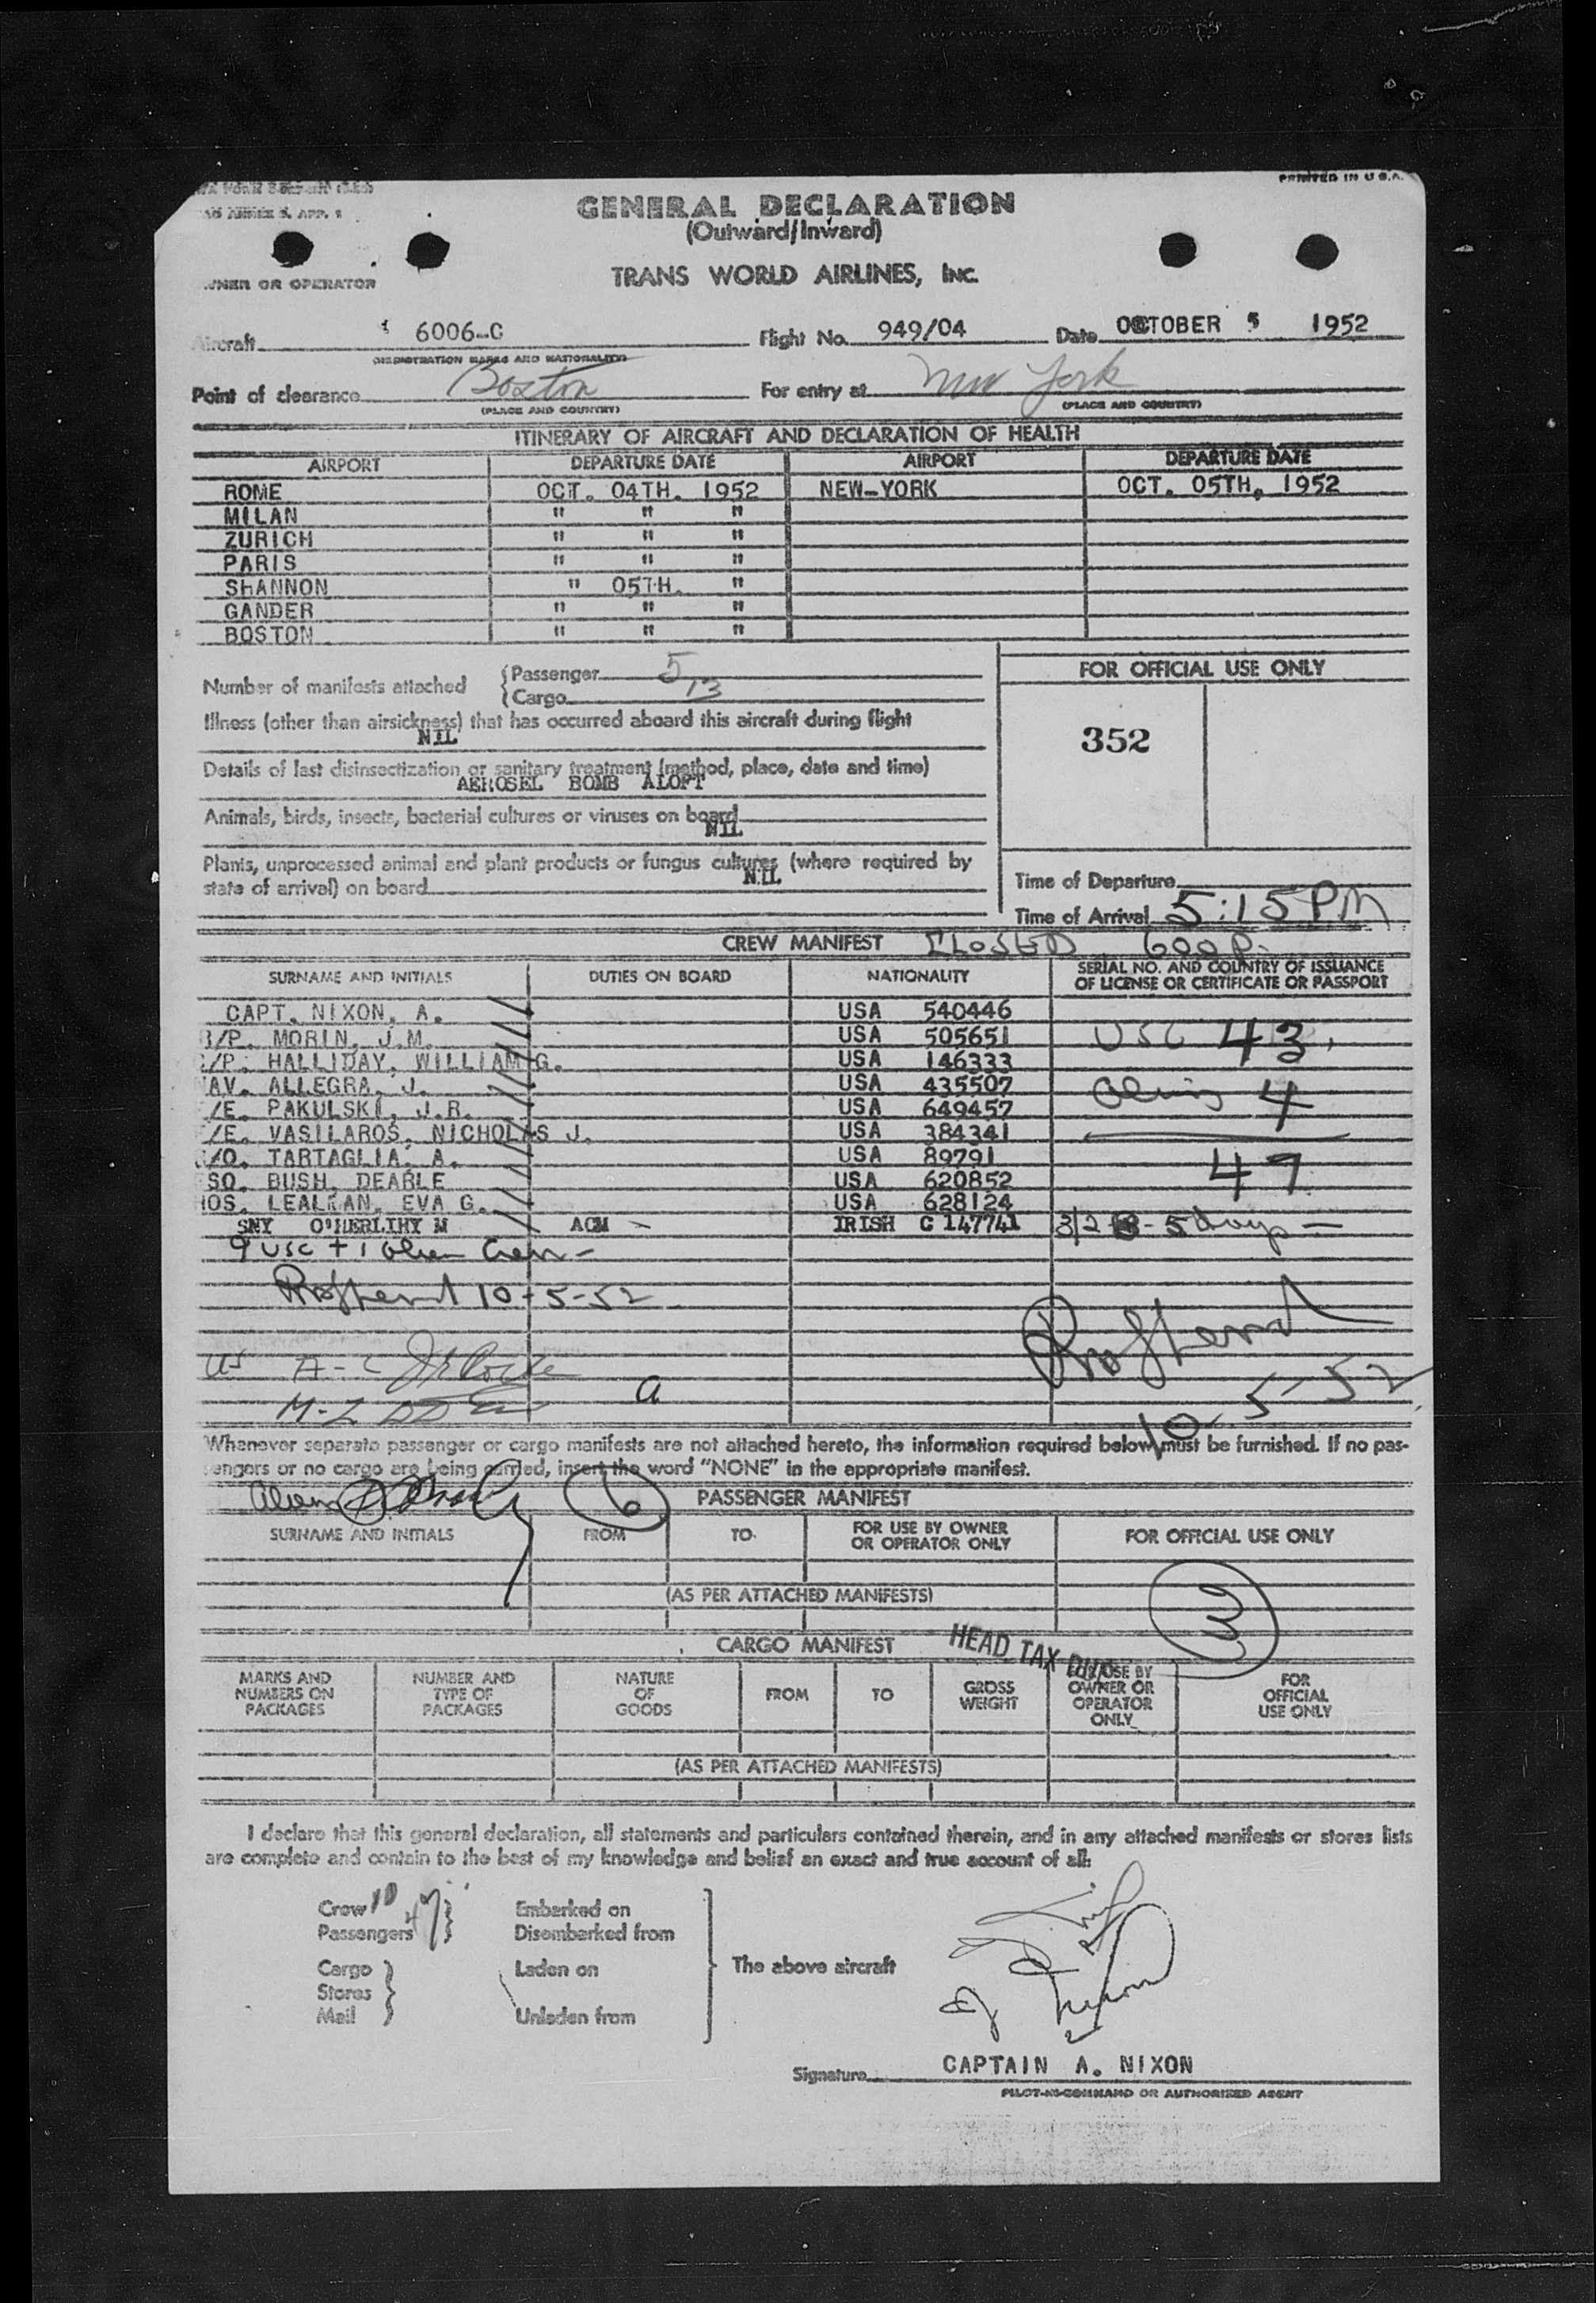 PRINTED IN U.S.A.
GENERAL DECLARATION
(Outward/Inward)
TRANS WORLD AIRLINES, INC.
OWNER OR OPERATOR
Aircraft 6006-C Flight No. 949/04 Date OCTOBER 5 1952
(REGISTRATION MARKS AND NATIONALITY)
Point of clearance Boston For entry at New York
(PLACE AND COUNTRY) (PLACE AND COUNTRY)
ITINERARY OF AIRCRAFT AND DECLARATION OF HEALTH
AIRPORT DEPARTURE DATE AIRPORT DEPARTURE DATE
ROME OCT. 04TH. 1952 NEW-YORK OCT. 05TH. 1952
MILAN " " "
ZURICH " " "
PARIS " " "
SHANNON " 05TH. "
GANDER " " "
BOSTON " " "
Number of manifests attached { Passenger 5
{ Cargo 13
FOR OFFICIAL USE ONLY
352
Illness (other than airsickness) that has occurred aboard this aircraft during flight
NIL
Details of last disinsectization or sanitary treatment (method, place, date and time)
AEROSEL BOMB ALOFT
Animals, birds, insects, bacterial cultures or viruses on board
NIL
Plants, unprocessed animal and plant products or fungus cultures (where required by
state of arrival) on board NIL
Time of Departure
Time of Arrival 5:15 PM
CREW MANIFEST
SURNAME AND INITIALS DUTIES ON BOARD NATIONALITY SERIAL NO. AND COUNTRY OF ISSUANCE
OF LICENSE OR CERTIFICATE OR PASSPORT
CAPT. NIXON, A. USA 540446
/P. MORIN, J.M. USA 505651 USC 43
/P. HALLIDAY, WILLIAM G. USA 146333
AV. ALLEGRA, J. USA 435507 4
/E. PAKULSKI, J.R. USA 649457
/E. VASILAROS, NICHOLAS J. USA 384341
/O. TARTAGLIA, A. USA 89791 47
SO. BUSH, DEARLE USA 620852
HOS. LEALMAN, EVA G. USA 628124
SNY O'HERLIHY M ACM - IRISH C 147741 3/2 - 5 days
9 USC + 1 alien Crew -
10-5-52
10-5-52
Whenever separate passenger or cargo manifests are not attached hereto, the information required below must be furnished. If no pas-
sengers or no cargo are being carried, insert the word "NONE" in the appropriate manifest.
6 PASSENGER MANIFEST
SURNAME AND INITIALS FROM TO FOR USE BY OWNER
OR OPERATOR ONLY FOR OFFICIAL USE ONLY
(AS PER ATTACHED MANIFESTS)
3
CARGO MANIFEST HEAD TAX DUE
MARKS AND
NUMBERS ON
PACKAGES NUMBER AND
TYPE OF
PACKAGES NATURE
OF
GOODS FROM TO GROSS
WEIGHT FOR USE BY
OWNER OR
OPERATOR
ONLY FOR
OFFICIAL
USE ONLY
(AS PER ATTACHED MANIFESTS)
I declare that this general declaration, all statements and particulars contained therein, and in any attached manifests or stores lists
are complete and contain to the best of my knowledge and belief an exact and true account of all:
Crew 10 Embarked on
Passengers 47 Disembarked from
The above aircraft
Cargo Laden on
Stores
Mail Unladen from
Signature CAPTAIN A. NIXON
PILOT-IN-COMMAND OR AUTHORIZED AGENT